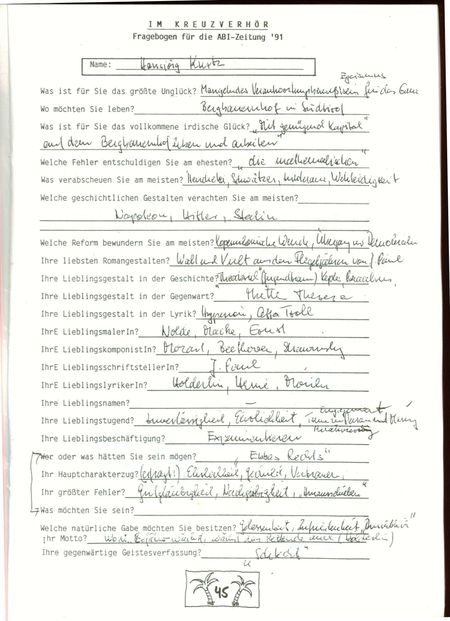 IM KREUZVERHÖR
Fragebogen für die ABI-Zeitung '91
Name: Hansjörg Kurtz
Egoismus
Was ist für Sie das größte Unglück? Mangelndes für das Ganze
Wo möchten Sie leben? Bergbauernhof in Südtirol
Was ist für Sie das vollkommene irdische Glück? "Mit genügend Kapital"
auf dem Bergbauernhof leben und arbeiten"
Welche Fehler entschuldigen Sie am ehesten? "die mathematischen"
Was verabscheuen Sie am meisten? Heuchelei, Schwätzer, Wehleidigkeit
Welche geschichtlichen Gestalten verachten Sie am meisten?
Napoleon, Hitler, Stalin
Welche Reform bewundern Sie am meisten? Kopernikanische Wende, Übergang zur Demokratie
Ihre liebsten Romangestalten? Walt und Vult aus den Flegeljahren von J. Paul
Ihre Lieblingsgestalt in der Geschichte?
Ihre Lieblingsgestalt in der Gegenwart? Mutter Theresa
Ihre Lieblingsgestalt in der Lyrik? Hyperion, Atta Troll
IhrE LieblingsmalerIn? Nolde, Macke, Ernst
IhrE LieblingskomponistIn? Mozart, Beethoven, Strawinsky
IhrE LieblingsschriftstellerIn? J. Paul
IhrE LieblingslyrikerIn? Hölderlin, Heine,
Ihre Lieblingsnamen? —
Engagement
Ihre Lieblingstugend? Zuverlässigkeit, Ehrlichkeit,
Ihre Lieblingsbeschäftigung? Experimentieren
Wer oder was hätten Sie sein mögen? "Etwas Rechts"
Ihr Hauptcharakterzug? (erfragt!) Ehrlichkeit,
Ihr größter Fehler? Gutgläubigkeit, Nachgiebigkeit,
Was möchten Sie sein?
Welche natürliche Gabe möchten Sie besitzen? Gelassenheit, Zufriedenheit
Ihr Motto? Wo die Gefahr wächst, wächst das Rettende auch (Hölderlin)
Ihre gegenwärtige Geistesverfassung?
45